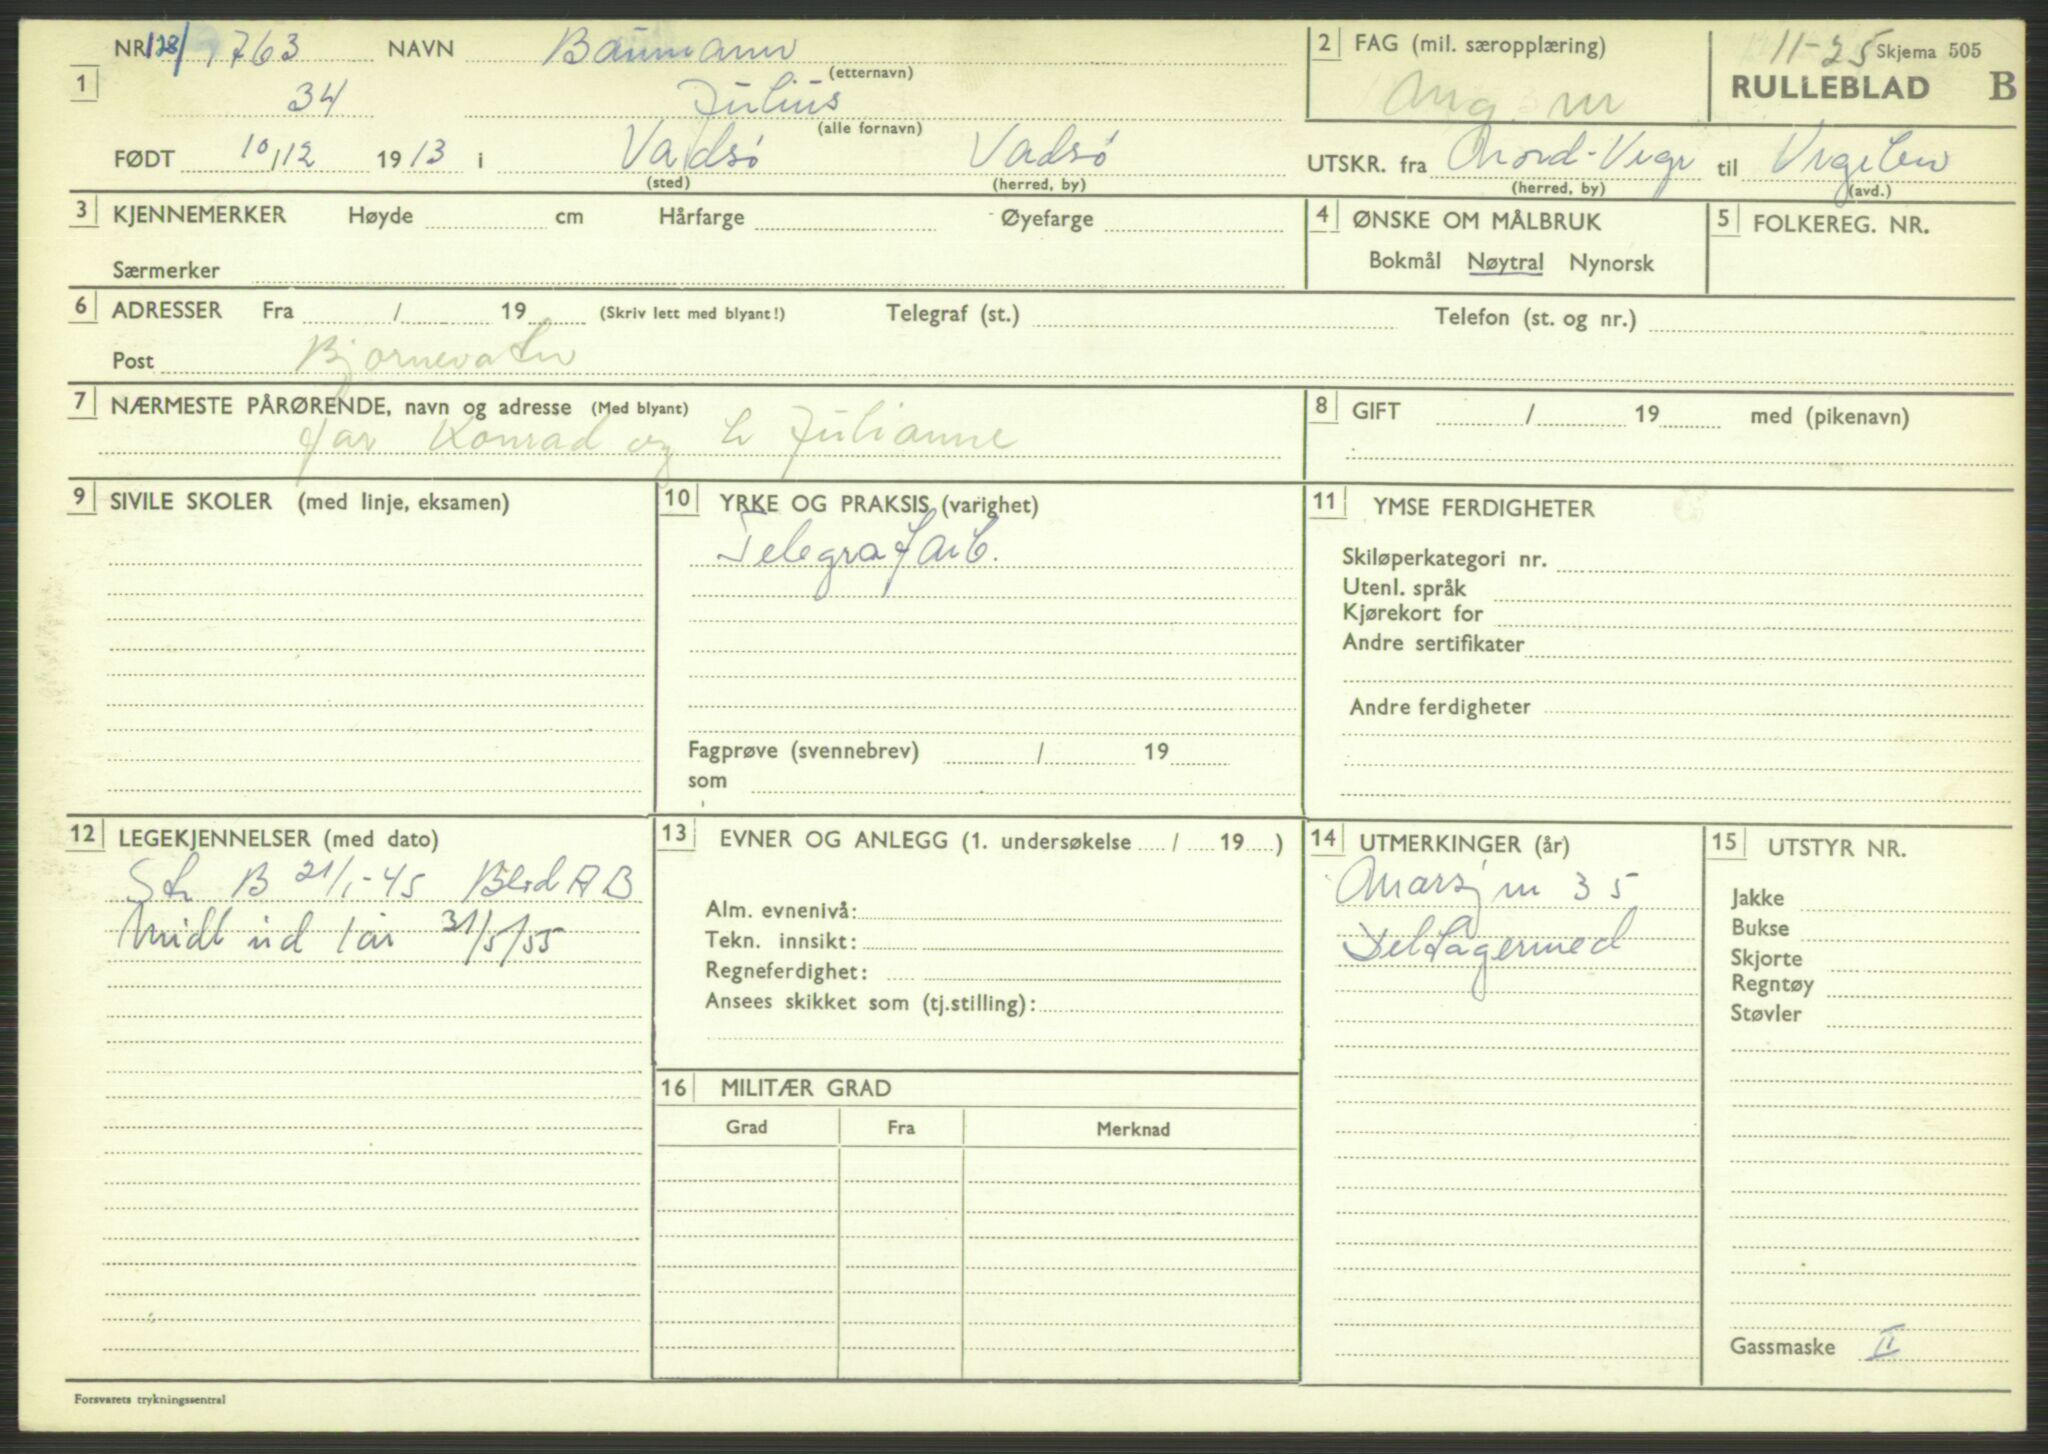 NR 128/ 763 NAVN Baumann
(etternavn)
2 FAG (mil. særopplæring)
11-25 Skjema 505
RULLEBLAD B
1
34 Julius
(alle fornavn)
FØDT 10/12 1913 i Vadsø Vadsø
(sted) (herred, by)
UTSKR. fra til
(herred, by) (avd.)
3 KJENNEMERKER Høyde cm Hårfarge Øyefarge
Særmerker
4 ØNSKE OM MÅLBRUK
Bokmål Nøytral Nynorsk
5 FOLKEREG. NR.
6 ADRESSER Fra / 19 (Skriv lett med blyant!) Telegraf (st.) Telefon (st. og nr.)
Post Bjørnevatn
7 NÆRMESTE PÅRØRENDE, navn og adresse (Med blyant)
far Konrad og h Julianne
8 GIFT / 19 med (pikenavn)
9 SIVILE SKOLER (med linje, eksamen)
10 YRKE OG PRAKSIS (varighet)
Telegrafarb.
Fagprøve (svennebrev) / 19
som
11 YMSE FERDIGHETER
Skiløperkategori nr.
Utenl. språk
Kjørekort for
Andre sertifikater
Andre ferdigheter
12 LEGEKJENNELSER (med dato)
St B 21/1-45 Blod AB
Midl ud 1 år 31/5/55
13 EVNER OG ANLEGG (1. undersøkelse / 19 )
Alm. evnenivå:
Tekn. innsikt:
Regneferdighet:
Ansees skikket som (tj.stilling):
14 UTMERKINGER (år)
Marsjm 35
Deltagermed
15 UTSTYR NR.
Jakke
Bukse
Skjorte
Regntøy
Støvler
Gassmaske II
16 MILITÆR GRAD
Grad Fra Merknad
Forsvarets trykningssentral